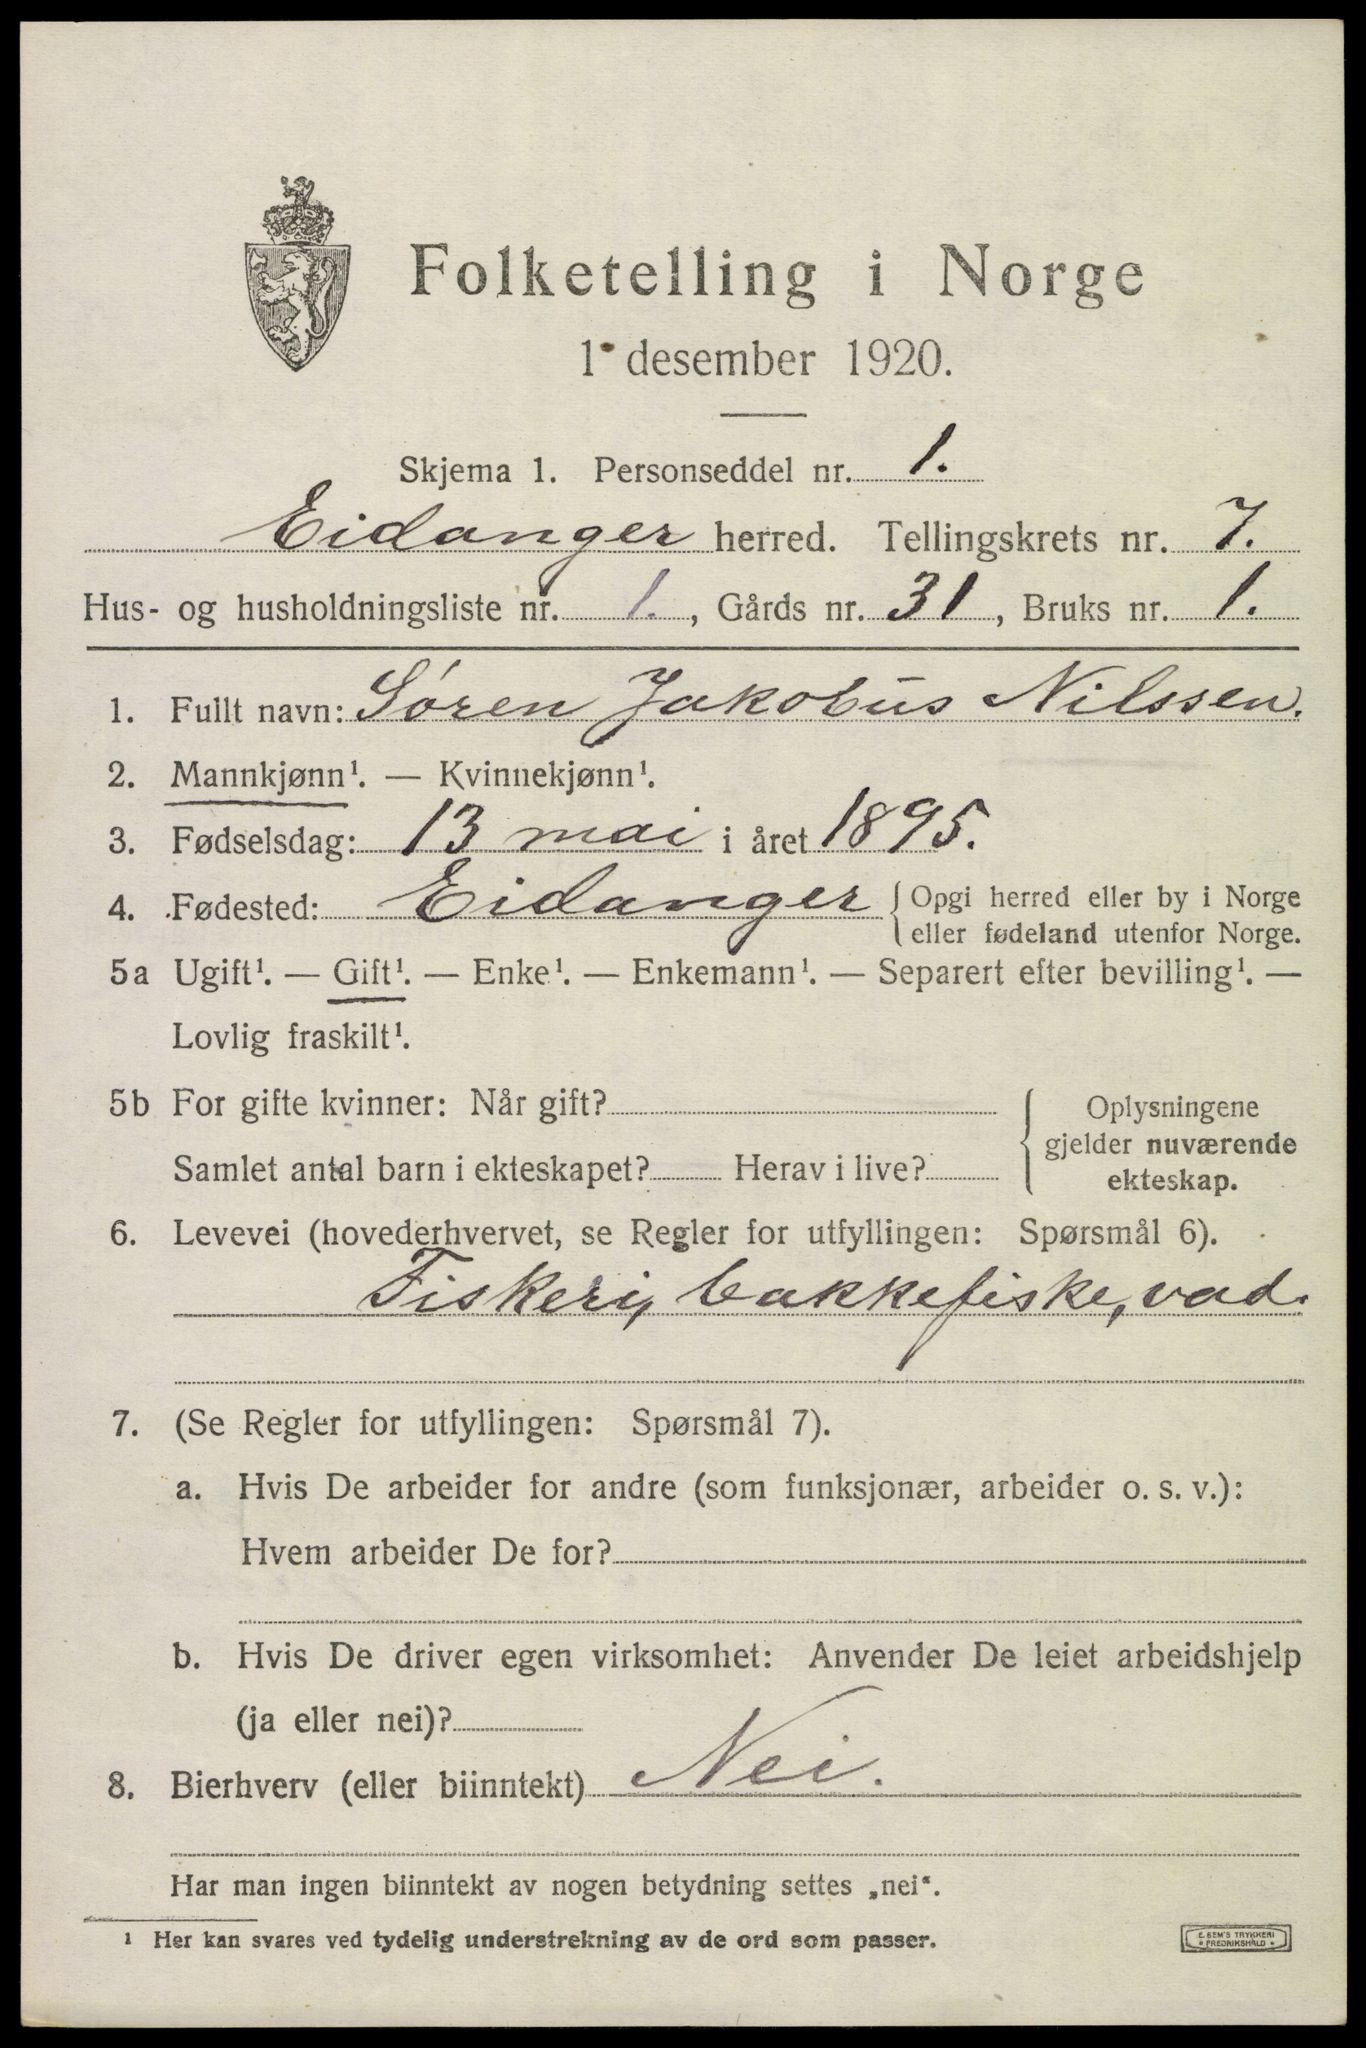 Folketelling i Norge
1 desember 1920.
Skjema 1. Personseddel nr. 1.
Eidanger herred. Tellingskrets nr. 7.
Hus- og husholdningsliste nr. 1., Gårds nr. 31, Bruks nr. 1.
1. Fullt navn: Søren Jakobus Nilssen.
2. Mannkjønn¹. — Kvinnekjønn¹.
3. Fødselsdag: 13 mai i året 1895.
4. Fødested: Eidanger { Opgi herred eller by i Norge
eller fødeland utenfor Norge.
5a Ugift¹. — Gift¹. — Enke¹. — Enkemann¹. — Separert efter bevilling¹. —
Lovlig fraskilt¹.
5b For gifte kvinner: Når gift?
Samlet antal barn i ekteskapet? Herav i live?
{ Oplysningene
gjelder nuværende
ekteskap.
6. Levevei (hovederhvervet, se Regler for utfyllingen: Spørsmål 6).
Fiskeri, bakkefiske, vad.
7. (Se Regler for utfyllingen: Spørsmål 7).
a. Hvis De arbeider for andre (som funksjonær, arbeider o. s. v.):
Hvem arbeider De for?
b. Hvis De driver egen virksomhet: Anvender De leiet arbeidshjelp
(ja eller nei)?
8. Bierhverv (eller biinntekt) Nei.
Har man ingen biinntekt av nogen betydning settes „nei“.
¹ Her kan svares ved tydelig understrekning av de ord som passer.
E. SEM'S TRYKKERI
FREDRIKSHALD